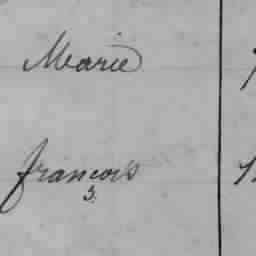 Marie
françois